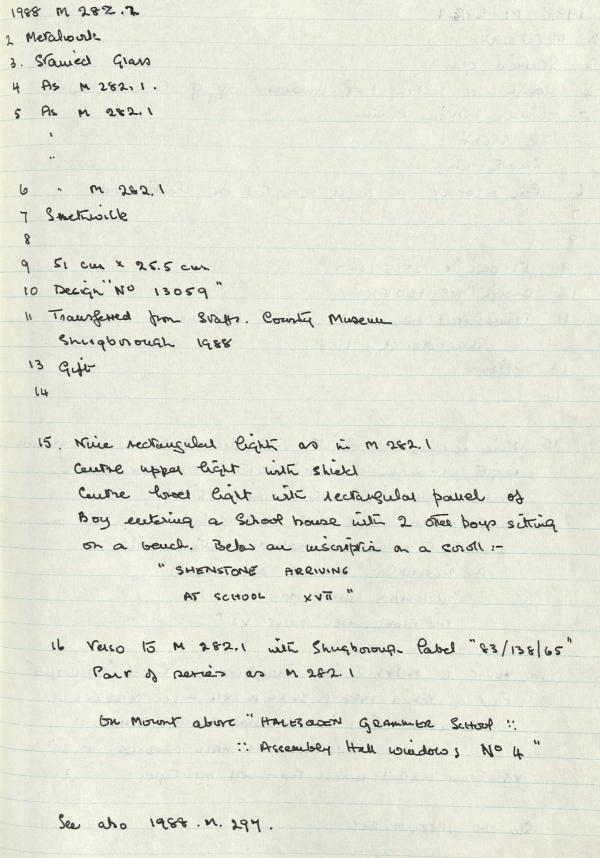 1988 M 282.2
2 Metalwork
3. Stained Glass
4 As M 282.1.
5 As M 282.1
"
"
6 " M 282.1
7 Smethwick
8
9 51 cm x 25.5 cm
10 Design "No 13059"
11 Transferred from Staffs. County Museum
Shugborough 1988
13 Gift
14
15. Nine rectangular lights as in M 282.1
Centre upper light with shield
Centre lower light with rectangular panel of
Boy entering a School house with 2 other boys sitting
on a bench. Below an inscription on a scroll :-
" SHENSTONE ARRIVING
AT SCHOOL XVII "
16 Verso to M 282.1 with Shugborough label "83/138/65"
Part of series as M 282.1
On Mount above "HALESOWEN GRAMMER SCHOOL ::
:: Assembly Hall windows No 4 "
See also 1988.M.297.